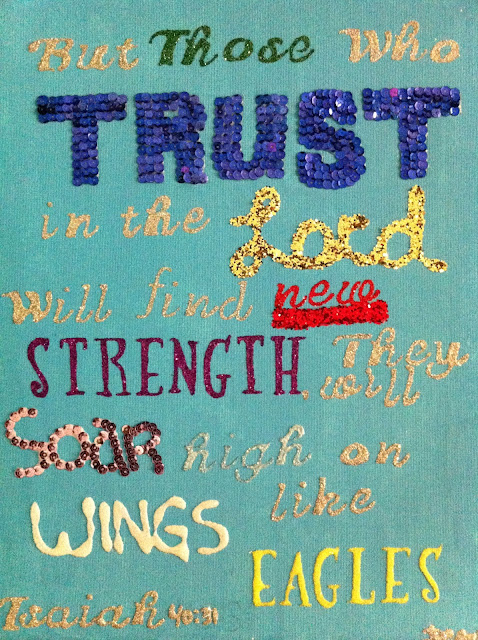 But Those Who
TRUST
in the Lord
will find new
STRENGTH. They
will
SOAR high on
WINGS like
EAGLES
Isaiah 40:31